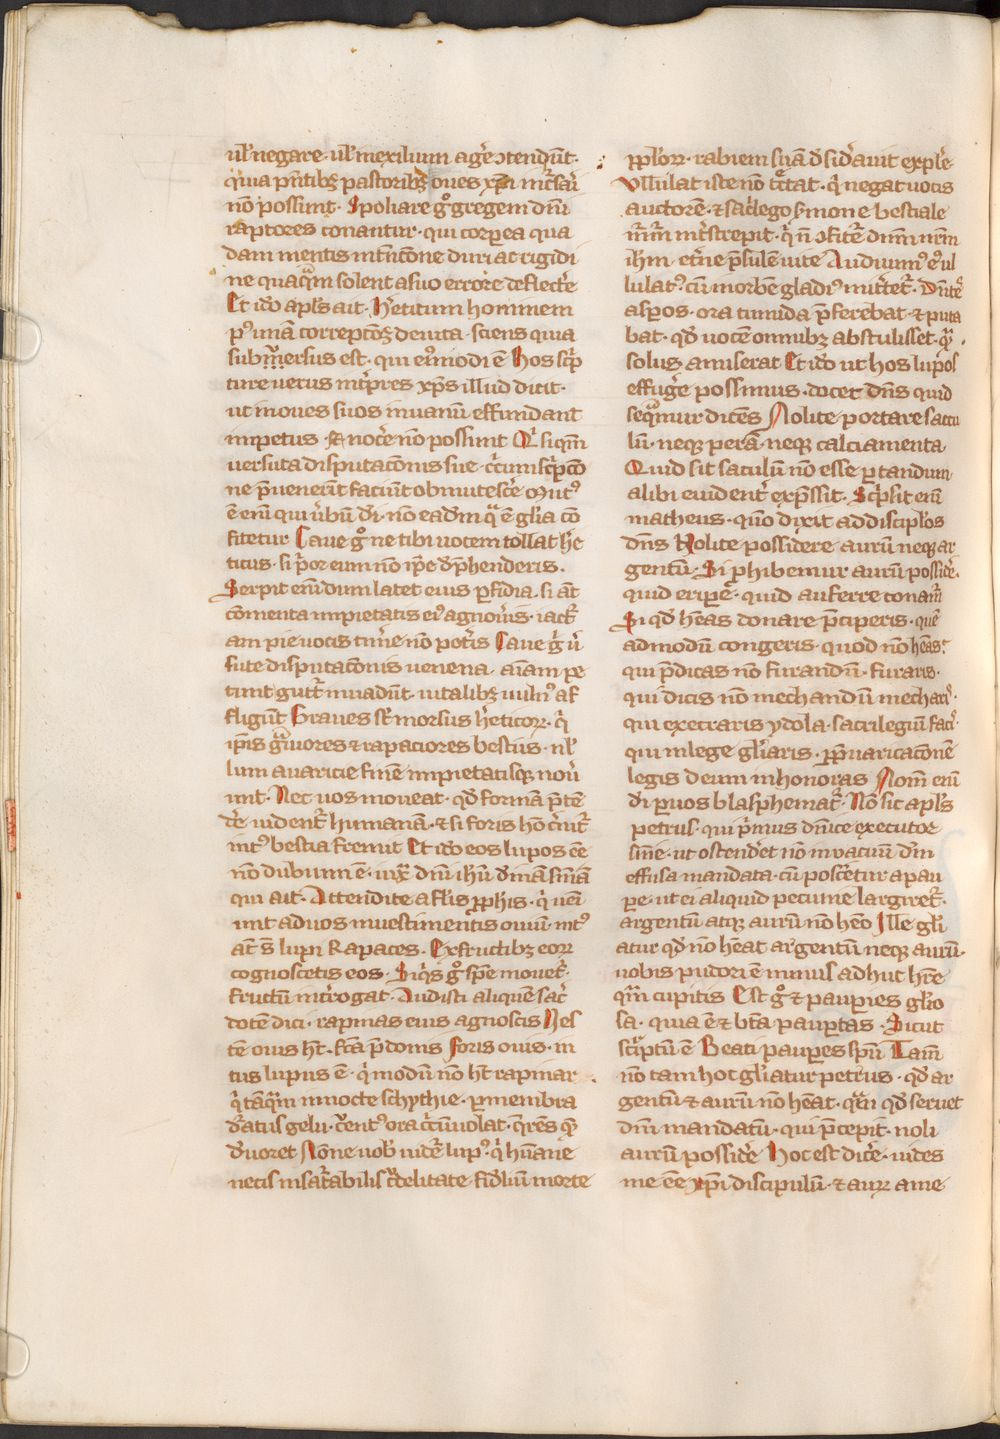 ul' negare · ul' in exilium agē̄ ↄtendūt ·
quia p̄ntibꝫ pastoribꝫ oues xp̄i īcursari
nō possunt · Spoliare gͦ gregem dn̄i
raptores conantur · qui corꝑea qua
dam mentis intēcōne duri ac rigidi
ne quaqᵃm solent a suo errore deflectē
Et iō apl's ait · H̄eticum hominem
pꝰ unā correpcōꝫ deuita · sciens quia
submersus est · qui eiꝰmodi ē Hos sc̄p
ture uetus int̄pres xp̄s illud dicit ·
ut in oues suos inuanū effundant
impetus · & nocē nō possunt Qͥ si qͫn
uersuta disputacōnis sue · c̄cūsc̄pcō
ne p̄uenerīt faciūt obmutescē Mutꝰ
ē em̄ qui ūbū dī · nō eadm̄ qͣ ē gl'ia cō
fitetur Caue gͦ ne tibi uocem tollat h̄e
ticus · si p̄or eum nō ip̄e dp̄henderis ·
Serpit em̄ dum latet eius ꝑfidia · si āt
cōmenta impietatis eiꝰ agnoūis · iactr̄
am pie uocis tim̄e nō pot̄is Caue gͦ ū
sute disputacōnis uenena · aīam pe
tunt gutt̄ inuadūt · uitalibꝫ uulnꝰ af
fligūt Graues sr̄ morsus h̄eticoꝝ · qͥ
ip̄is gͣuiores & rapaciores bestiis · nl'
lum auaricie finē impietatisqꝫ noū
int · Nec uos moueat · qd̄ formā p̄te
dē uidentr̄ humanā · & si foris hō c̄nitr̄
intꝰ bestia fremit Et iō eos lupos eē
nō dubium ē · iuxͣ dn̄i ih̄u d̄inā sn̄iam
qui ait · Attendite a fl'is ꝓphis · qͥ ueī
unt ad uos in uestimentis ouiū · intꝰ
at̄ s̄ lupi Rapaces · Ex fructibꝫ eoꝝ
cognoscetis eos · Siqͥs gͦ spē mouetr̄ ·
fructū int̄rogat · Audisti aliquē sac̄
dotē dici · rapinas eius agnoscis Ves
tē ouis h̄t · fc̄a p̄donis foris ouis · in
tus lupus ē · qͥ modū nō h̄t rapinaꝝ
qͥ tāqͫ in nocte schythie · ꝑ membra
d̄atus gelu · c̄entꝰ ora c̄cūuolat · qr̄ēs qͫ
d̄uoret Nōne uob' uidet̄ lupꝰ · qͥ hūane
necis insat̄abilis c̄delitate · fid̄lium morte
ꝓpl'oꝝ · rabiem suā d̄sid̄auit explē
Ullulat iste nō tc̄tat · qͥ negat uocis
auctorē · & sac̄lego s̄mone bestiale
int̄strepit · qͥ n̄ ↄfitet̄ dn̄m nr̄m
ih̄m · etn̄e p̄sulē uite Audiuimꝰ eiꝰ ul
lulatꝰ · cū in orbē gladiꝰ mittetr̄ · Dn̄te
asp̄os · ora tumida p̄ferebat · & puta
bat · qd̄ uocē omnibꝫ abstulisset · qͣ
solus amiserat Et iō ut hos lupos
effugē possimus · docet dn̄s quid
seqͣmur dicēs Nolite portare saccu
lū · neqꝫ perā · neqꝫ calciamenta
Quid sit saculū nō esse ꝑtandum
alibi euident̄ exp̄ssit · Sc̄psit em̄
matheus · quō dixit ad discipl'os
dn̄s Nolite possidere aurū neqꝫ ar
gentū · Si ꝓhibemur aurū possidē ·
quid eriꝑē · quid auferre conam̄
Si qd̄ h̄eas donare p̄ciperis · quē
admodū congeris · quod nō h̄eas ·
qui p̄dicas nō furandū · furaris ·
qui dicis nō mechandū mecharis ·
qui execraris ydola · sacrilegiū facis
qui in lege gl'iaris · ꝑ p̄uaricacōnē
legis deum inhonoras Nom̄ em̄
dī ꝑ uos blasphematr̄ · Nō sic apl's
petrus · qui p̄mus dn̄ice executor
sn̄ie · ut ostend̄et nō in uacuū dn̄i
effusa mandata · cū poscetur a pau
pe · ut ei aliquid pecunie largiretr̄ ·
argentū atqꝫ aurū nō hēo Ille gl'i
atur qd̄ nō h̄eat argentū neqꝫ aurū ·
uobis pudori ē minus adhuc h̄re
qͫn cupitis Est gͦ & pauꝑies gl'io
sa · quia ē & bt̄a pauꝑtas · Sicut
sc̄ptū ē Beati pauꝑes spū Tam̄
nō tam hoc gl'iatur petrus · qd̄ ar
gentū & aurū nō h̄eat · qͣm qd̄ seruet
dn̄i mandatū · qui p̄cepit · noli
aurū possidē Hoc est dicē · uides
me eē xp̄i discipulū · & auꝝ a me